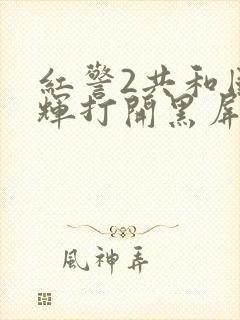 紅警2共和
輝打開黑屏
風神弄